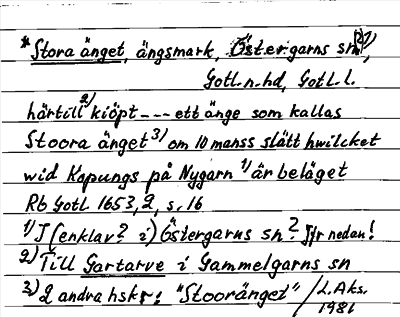 *Stora änget, ängsmark, Östergarns sn,
Gotl. n. hd, Gotl. l.
härtill 2) kiöpt --- ett änge som kallas
Stoora änget 3) om 10 manss slätt hwilcket
wid Kopungs på Nygarn 1) är beläget
Rb Gotl 1653, 2, s. 16
1) I (enklav? i) Östergarns sn? Jfr nedan!
2) Till Gartarve i Gammelgarns sn
3) 2 andra hskr: "Stooränget" / L. Aks.
1981